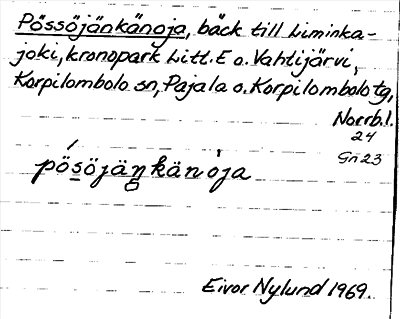 Pössöjänkänoja, bäck till Liminka-
joki, kronopark Litt. E o. Vahtijärvi,
Korpilombolo sn, Pajala o. Korpilombolo tg,
Norrb. l.
24
Gn 23
pösöjäŋkänoja
Eivor Nylund 1969.